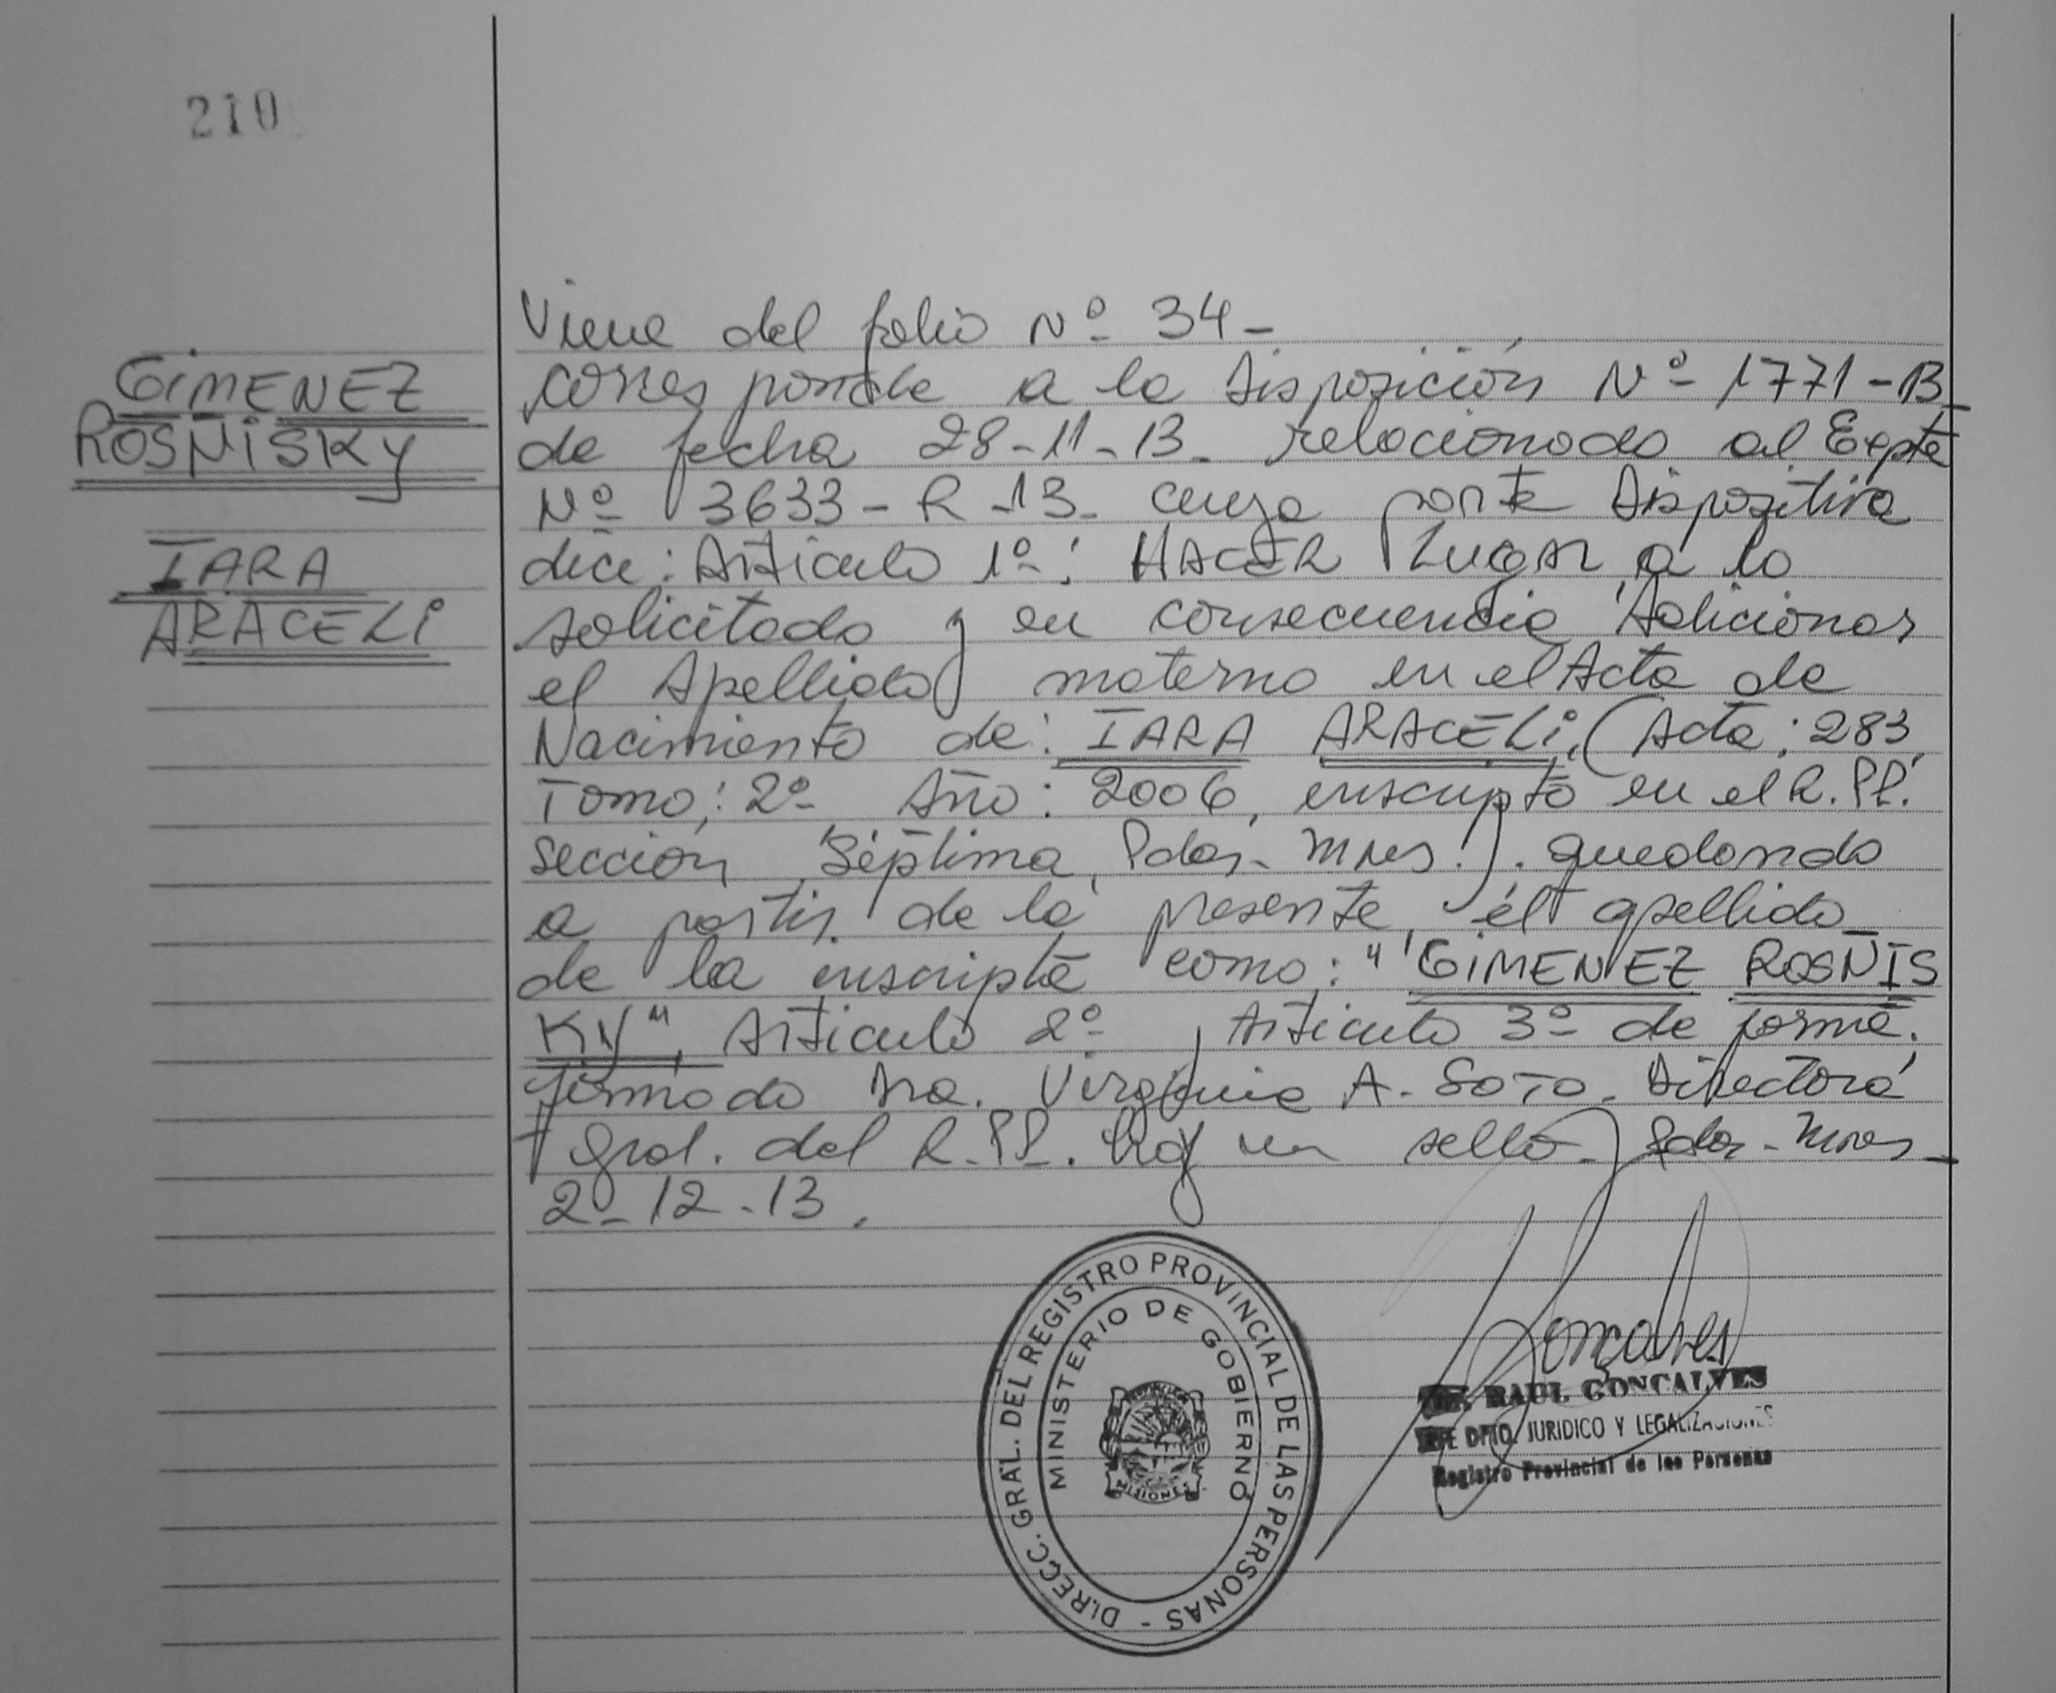 210
GIMENEZ
ROSNISKY
IARA
ARACELI
Viene del folio Nº 34-
corresponde a la disposición Nº 1771-13
de fecha 28-11-13. relacionado al Expte
Nº 3633-R-13. cuya parte dispositiva
dice: Artículo 1º: HACER Lugar a lo
solicitado y en consecuencia Adicionar
el Apellido materno en el Acta de
Nacimiento de: IARA ARACELI. (Acta: 283,
Tomo: 2º Año: 2006, inscripto en el R.PP.
sección Séptima, Pdas. Mnes.). quedando
a partir de la presente el apellido
de la inscripta como: "GIMENEZ ROSNIS
KY", Artículo 2º, Artículo 3º de forma.
firmado Sra. Virginia A. SOTO. Directora
Gral. del R.PP. Hay un sello. Pdas-Mnes-
2-12-13.
DIRECC. GRAL. DEL REGISTRO PROVINCIAL DE LAS PERSONAS -
MINISTERIO DE GOBIERNO
MISIONES
Goncalves
RAUL GONCALVES
DPTO. JURIDICO Y LEGALIZACIONES
Registro Provincial de las Personas